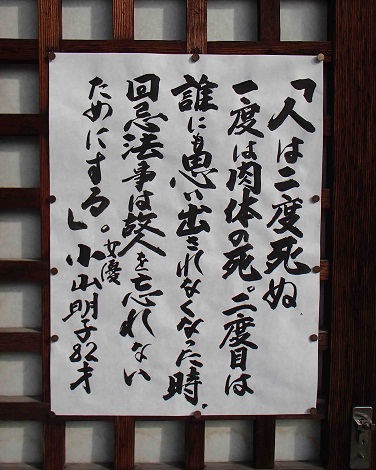 「人は二度死ぬ
一度は肉体の死。二度目は
誰にも思い出されなくなった時.
回忌法事は故人を忘れない
ためにする」。女優 小山明子82才